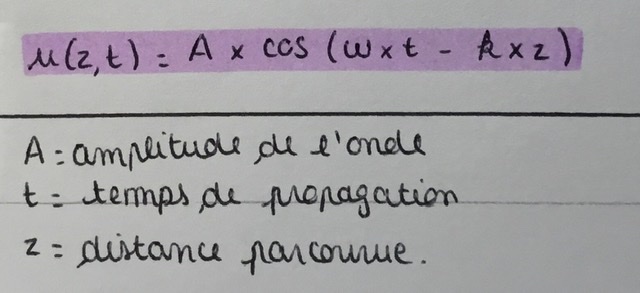 u(z,t) = A x cos (ω x t - k x z)
A = amplitude de l'onde
t = temps de propagation
z = distance parcourue.